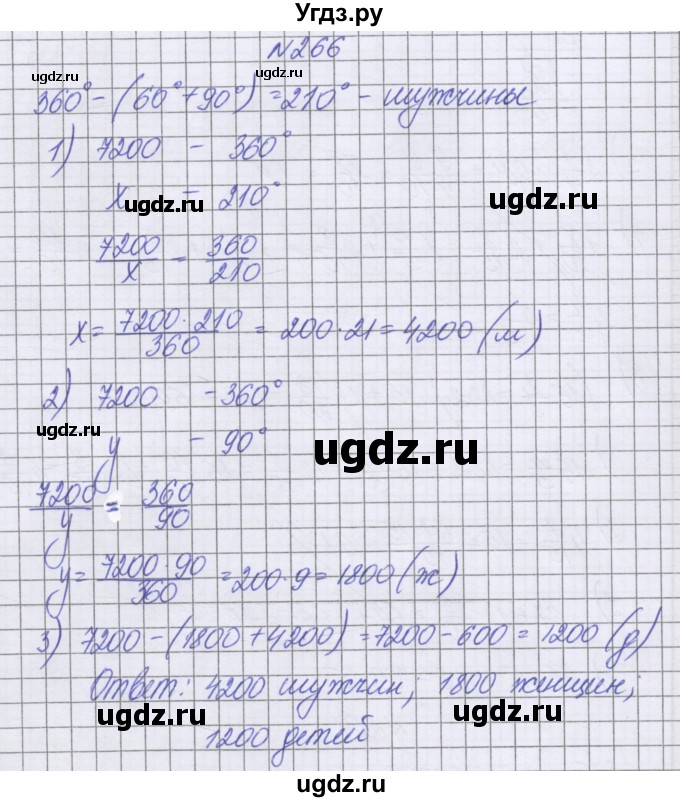 Угдз.ру
№266
ugdz.ru ugdz.ru
360° - (60° + 90°) = 210° - мужчины
1) 7200 - 360°
x - 210°
ugdz.ru ugdz.ru
7200/x = 360/210
x = 7200·210/360 = 200·21 = 4200 (м)
2) 7200 - 360°
ugdz.ru
y - 90°
ugdz.ru
7200/y = 360/90
y = 7200·90/360 = 200·9 = 1800 (ж)
3) 7200 - (1800 + 4200) = 7200 - 600 = 1200 (д)
Ответ: 4200 мужчин; 1800 женщин;
ugdz.ru ugdz.ru
1200 детей
ugdz.ru